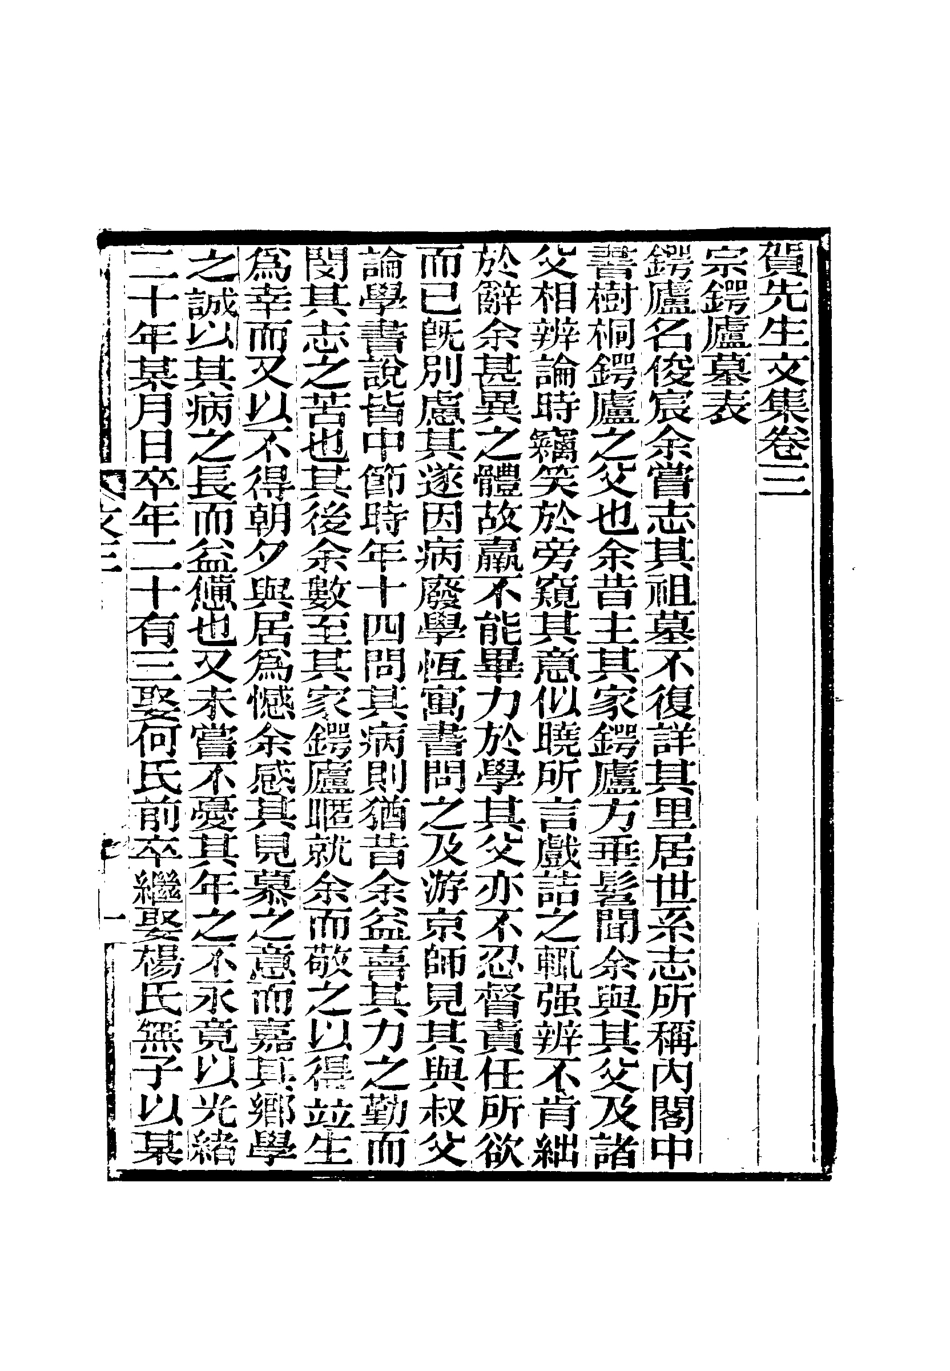 賀先生文集卷三
宗鍔廬墓表
鍔廬名俊宸余嘗志其祖墓不復詳其里居世系志所稱內閣中
書樹桐鍔廬之父也余昔主其家鍔廬方垂髫聞余與其父及諸
父相辨論時竊笑於旁窺其意似曉所言戲詰之輒强辨不肯絀
於辭余甚異之體故羸不能畢力於學其父亦不忍督責任所欲
而已旣別慮其遂因病廢學恆寓書問之及游京師見其與叔父
論學書說皆中節時年十四問其病則猶昔余益喜其力之勤而
閔其志之苦也其後余數至其家鍔廬暱就余而敬之以得竝生
爲幸而又以不得朝夕與居爲憾余感其見慕之意而嘉其鄉學
之誠以其病之長而益憊也又未嘗不憂其年之不永竟以光緒
二十年某月日卒年二十有三娶何氏前卒繼娶楊氏無子以某
文三
一